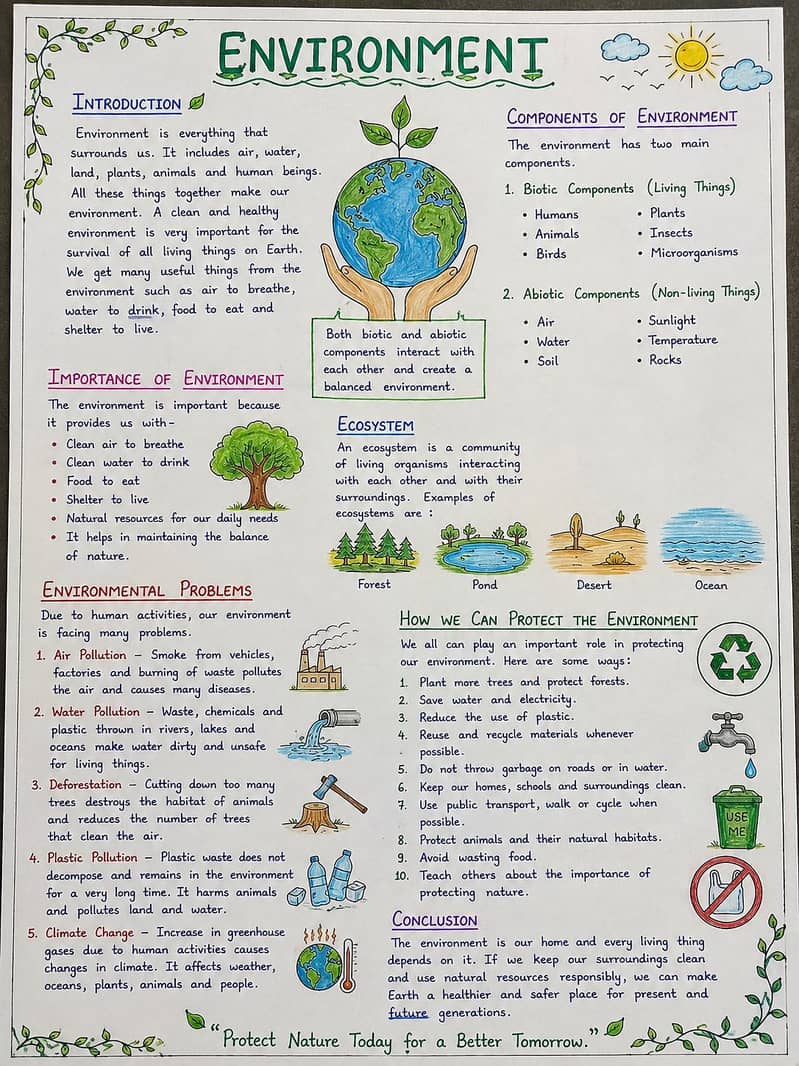 ENVIRONMENT
INTRODUCTION
Environment is everything that
surrounds us. It includes air, water,
land, plants, animals and human beings.
All these things together make our
environment. A clean and healthy
environment is very important for the
survival of all living things on Earth.
We get many useful things from the
environment such as air to breathe,
water to drink, food to eat and
shelter to live.
Both biotic and abiotic
components interact with
each other and create a
balanced environment.
COMPONENTS OF ENVIRONMENT
The environment has two main
components.
1. Biotic Components (Living Things)
• Humans
• Animals
• Birds
• Plants
• Insects
• Microorganisms
2. Abiotic Components (Non-living Things)
• Air
• Water
• Soil
• Sunlight
• Temperature
• Rocks
IMPORTANCE OF ENVIRONMENT
The environment is important because
it provides us with-
• Clean air to breathe
• Clean water to drink
• Food to eat
• Shelter to live
• Natural resources for our daily needs
• It helps in maintaining the balance
of nature.
ECOSYSTEM
An ecosystem is a community
of living organisms interacting
with each other and with their
surroundings. Examples of
ecosystems are :
Forest
Pond
Desert
Ocean
ENVIRONMENTAL PROBLEMS
Due to human activities, our environment
is facing many problems.
1. Air Pollution – Smoke from vehicles,
factories and burning of waste pollutes
the air and causes many diseases.
2. Water Pollution – Waste, chemicals and
plastic thrown in rivers, lakes and
oceans make water dirty and unsafe
for living things.
3. Deforestation – Cutting down too many
trees destroys the habitat of animals
and reduces the number of trees
that clean the air.
4. Plastic Pollution – Plastic waste does not
decompose and remains in the environment
for a very long time. It harms animals
and pollutes land and water.
5. Climate Change – Increase in greenhouse
gases due to human activities causes
changes in climate. It affects weather,
oceans, plants, animals and people.
HOW WE CAN PROTECT THE ENVIRONMENT
We all can play an important role in protecting
our environment. Here are some ways:
1. Plant more trees and protect forests.
2. Save water and electricity.
3. Reduce the use of plastic.
4. Reuse and recycle materials whenever
possible.
5. Do not throw garbage on roads or in water.
6. Keep our homes, schools and surroundings clean.
7. Use public transport, walk or cycle when
possible.
8. Protect animals and their natural habitats.
9. Avoid wasting food.
10. Teach others about the importance of
protecting nature.
USE
ME
CONCLUSION
The environment is our home and every living thing
depends on it. If we keep our surroundings clean
and use natural resources responsibly, we can make
Earth a healthier and safer place for present and
future generations.
"Protect Nature Today for a Better Tomorrow."